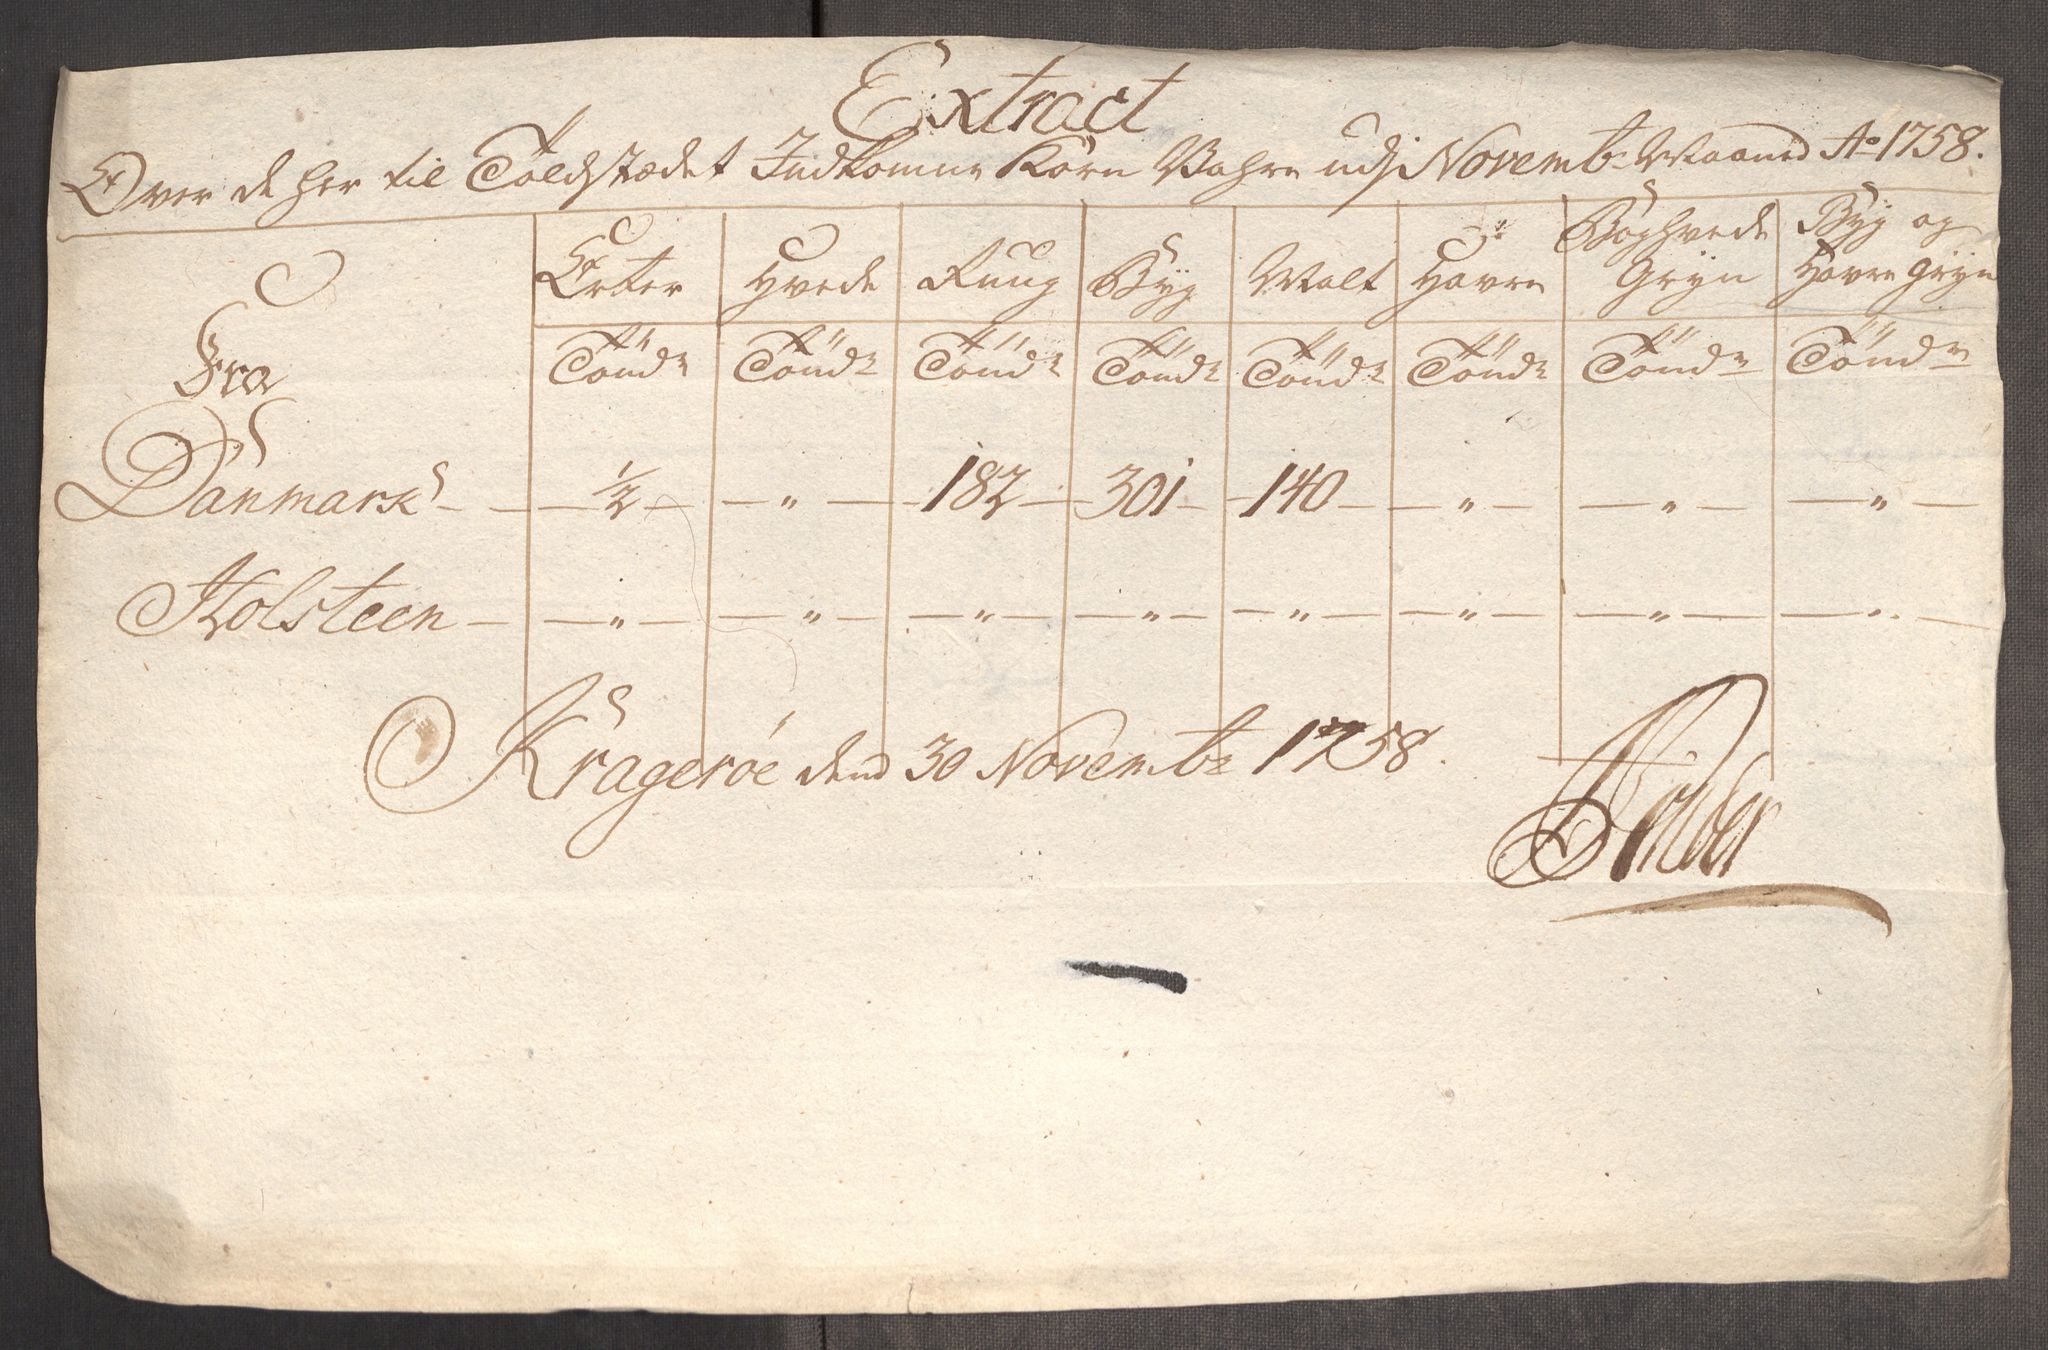 Extract
Over de her til Toldstædet Indkomne Korn Vahre udj Novembr Maaned Ao 1758.
Fra Erter Hvede Ruug Byg Malt Havre Boghvede Gryn Byg og Havre Gryn
Tönder Tönder Tönder Tönder Tönder Tönder Tönder Tönder
Danmark – ½ – " – 182 – 301 – 140 – " – " – " –
Holsteen – " – " – " – " – " – " – " – " –
Kragerøe dend 30 Novembr 1758.